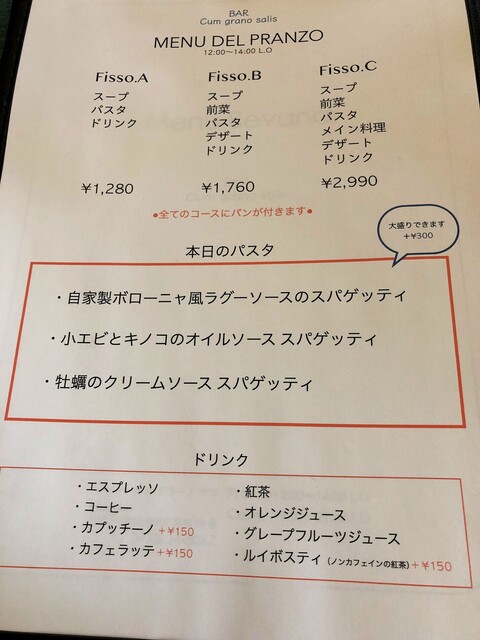 BAR
Cum grano salis
MENU DEL PRANZO
12:00～14:00 L.O
Fisso.A
スープ
パスタ
ドリンク
¥1,280
Fisso.B
スープ
前菜
パスタ
デザート
ドリンク
¥1,760
Fisso.C
スープ
前菜
パスタ
メイン料理
デザート
ドリンク
¥2,990
●全てのコースにパンが付きます●
大盛りできます
+¥300
本日のパスタ
・自家製ボローニャ風ラグーソースのスパゲッティ
・小エビとキノコのオイルソース スパゲッティ
・牡蠣のクリームソース スパゲッティ
ドリンク
・エスプレッソ
・コーヒー
・カプッチーノ +¥150
・カフェラッテ +¥150
・紅茶
・オレンジジュース
・グレープフルーツジュース
・ルイボスティ (ノンカフェインの紅茶) +¥150